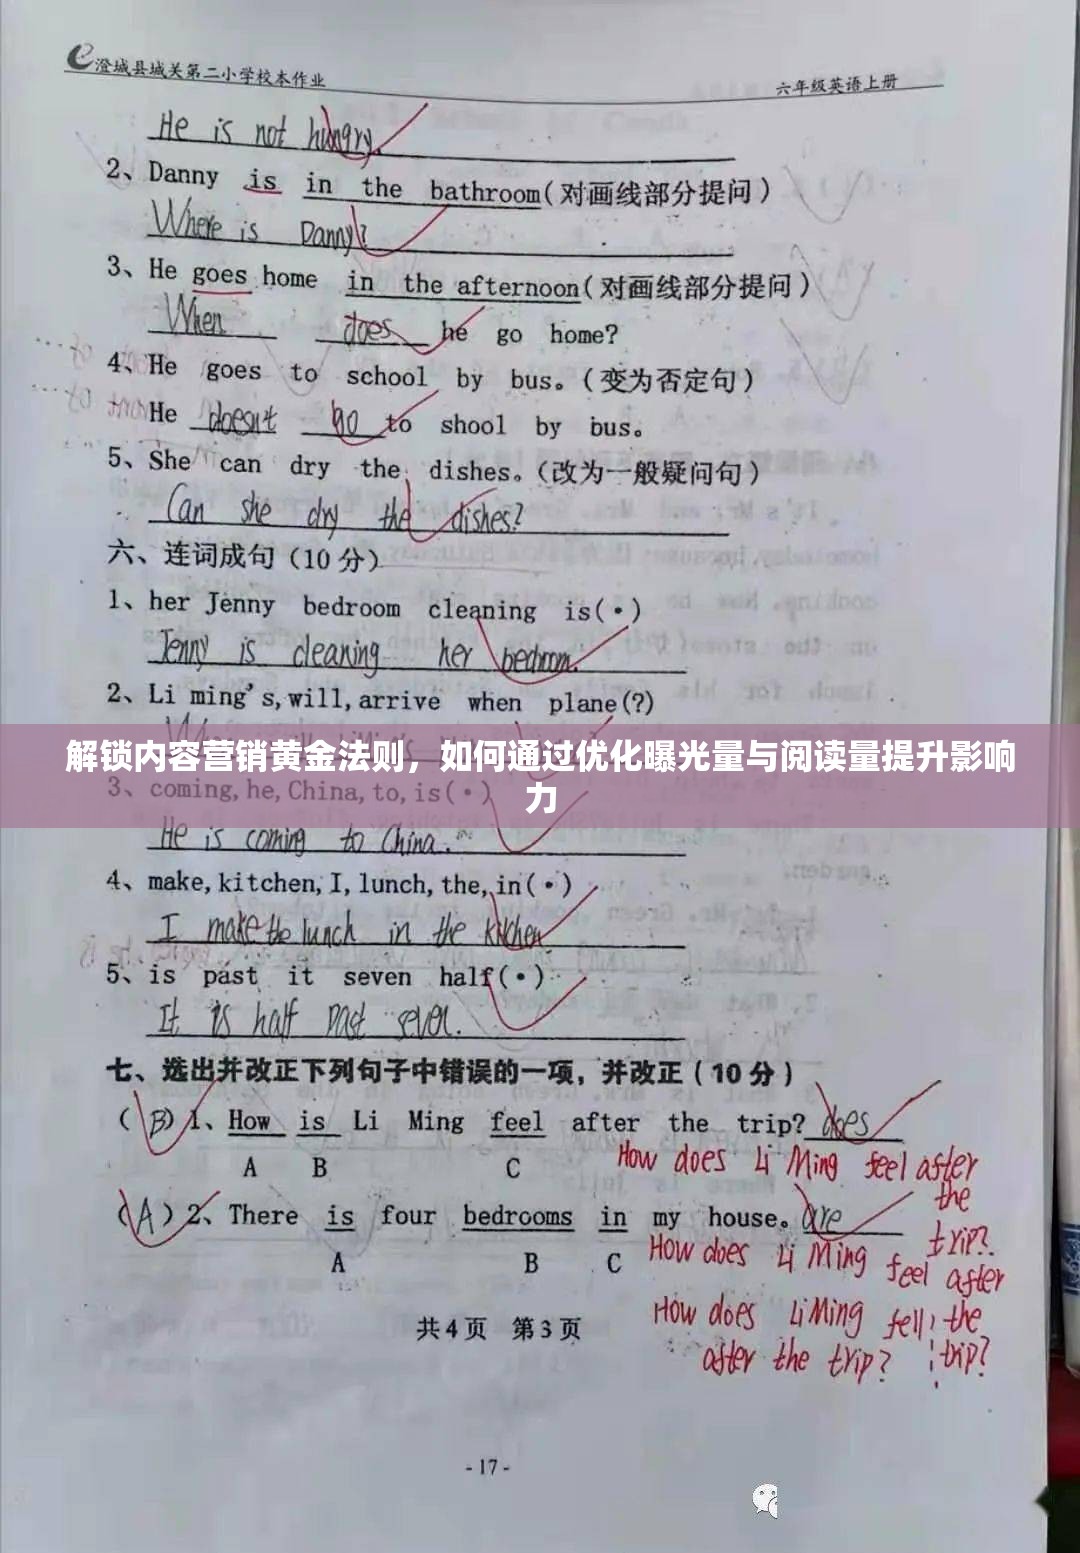 澄城县城关第二小学校本作业 六年级英语上册
He is not hungry.
2、Danny is in the bathroom(对画线部分提问)
Where is Danny?
3、He goes home in the afternoon(对画线部分提问)
When does he go home?
4、He goes to school by bus。(变为否定句)
He doesn't go to shool by bus。
5、She can dry the dishes。(改为一般疑问句)
Can she dry the dishes?
六、连词成句(10分)
1、her Jenny bedroom cleaning is(·)
Jenny is cleaning her bedroom.
2、Li ming's,will,arrive when plane(?)
解锁内容营销黄金法则，如何通过优化曝光量与阅读量提升影响
力
3、coming,he,China,to,is(·)
He is coming to China.
4、make,kitchen,I,lunch,the,in(·)
I make the lunch in the kitchen
5、is past it seven half(·)
It is half past seven.
七、选出并改正下列句子中错误的一项，并改正(10分)
(B)1、How is Li Ming feel after the trip? does
A B C
How does Li Ming feel after
the
trip?
(A)2、There is four bedrooms in my house。are
A B C
How does Li Ming feel after
the
trip?
How does Li Ming fell
after the trip?
共4页 第3页
-17-